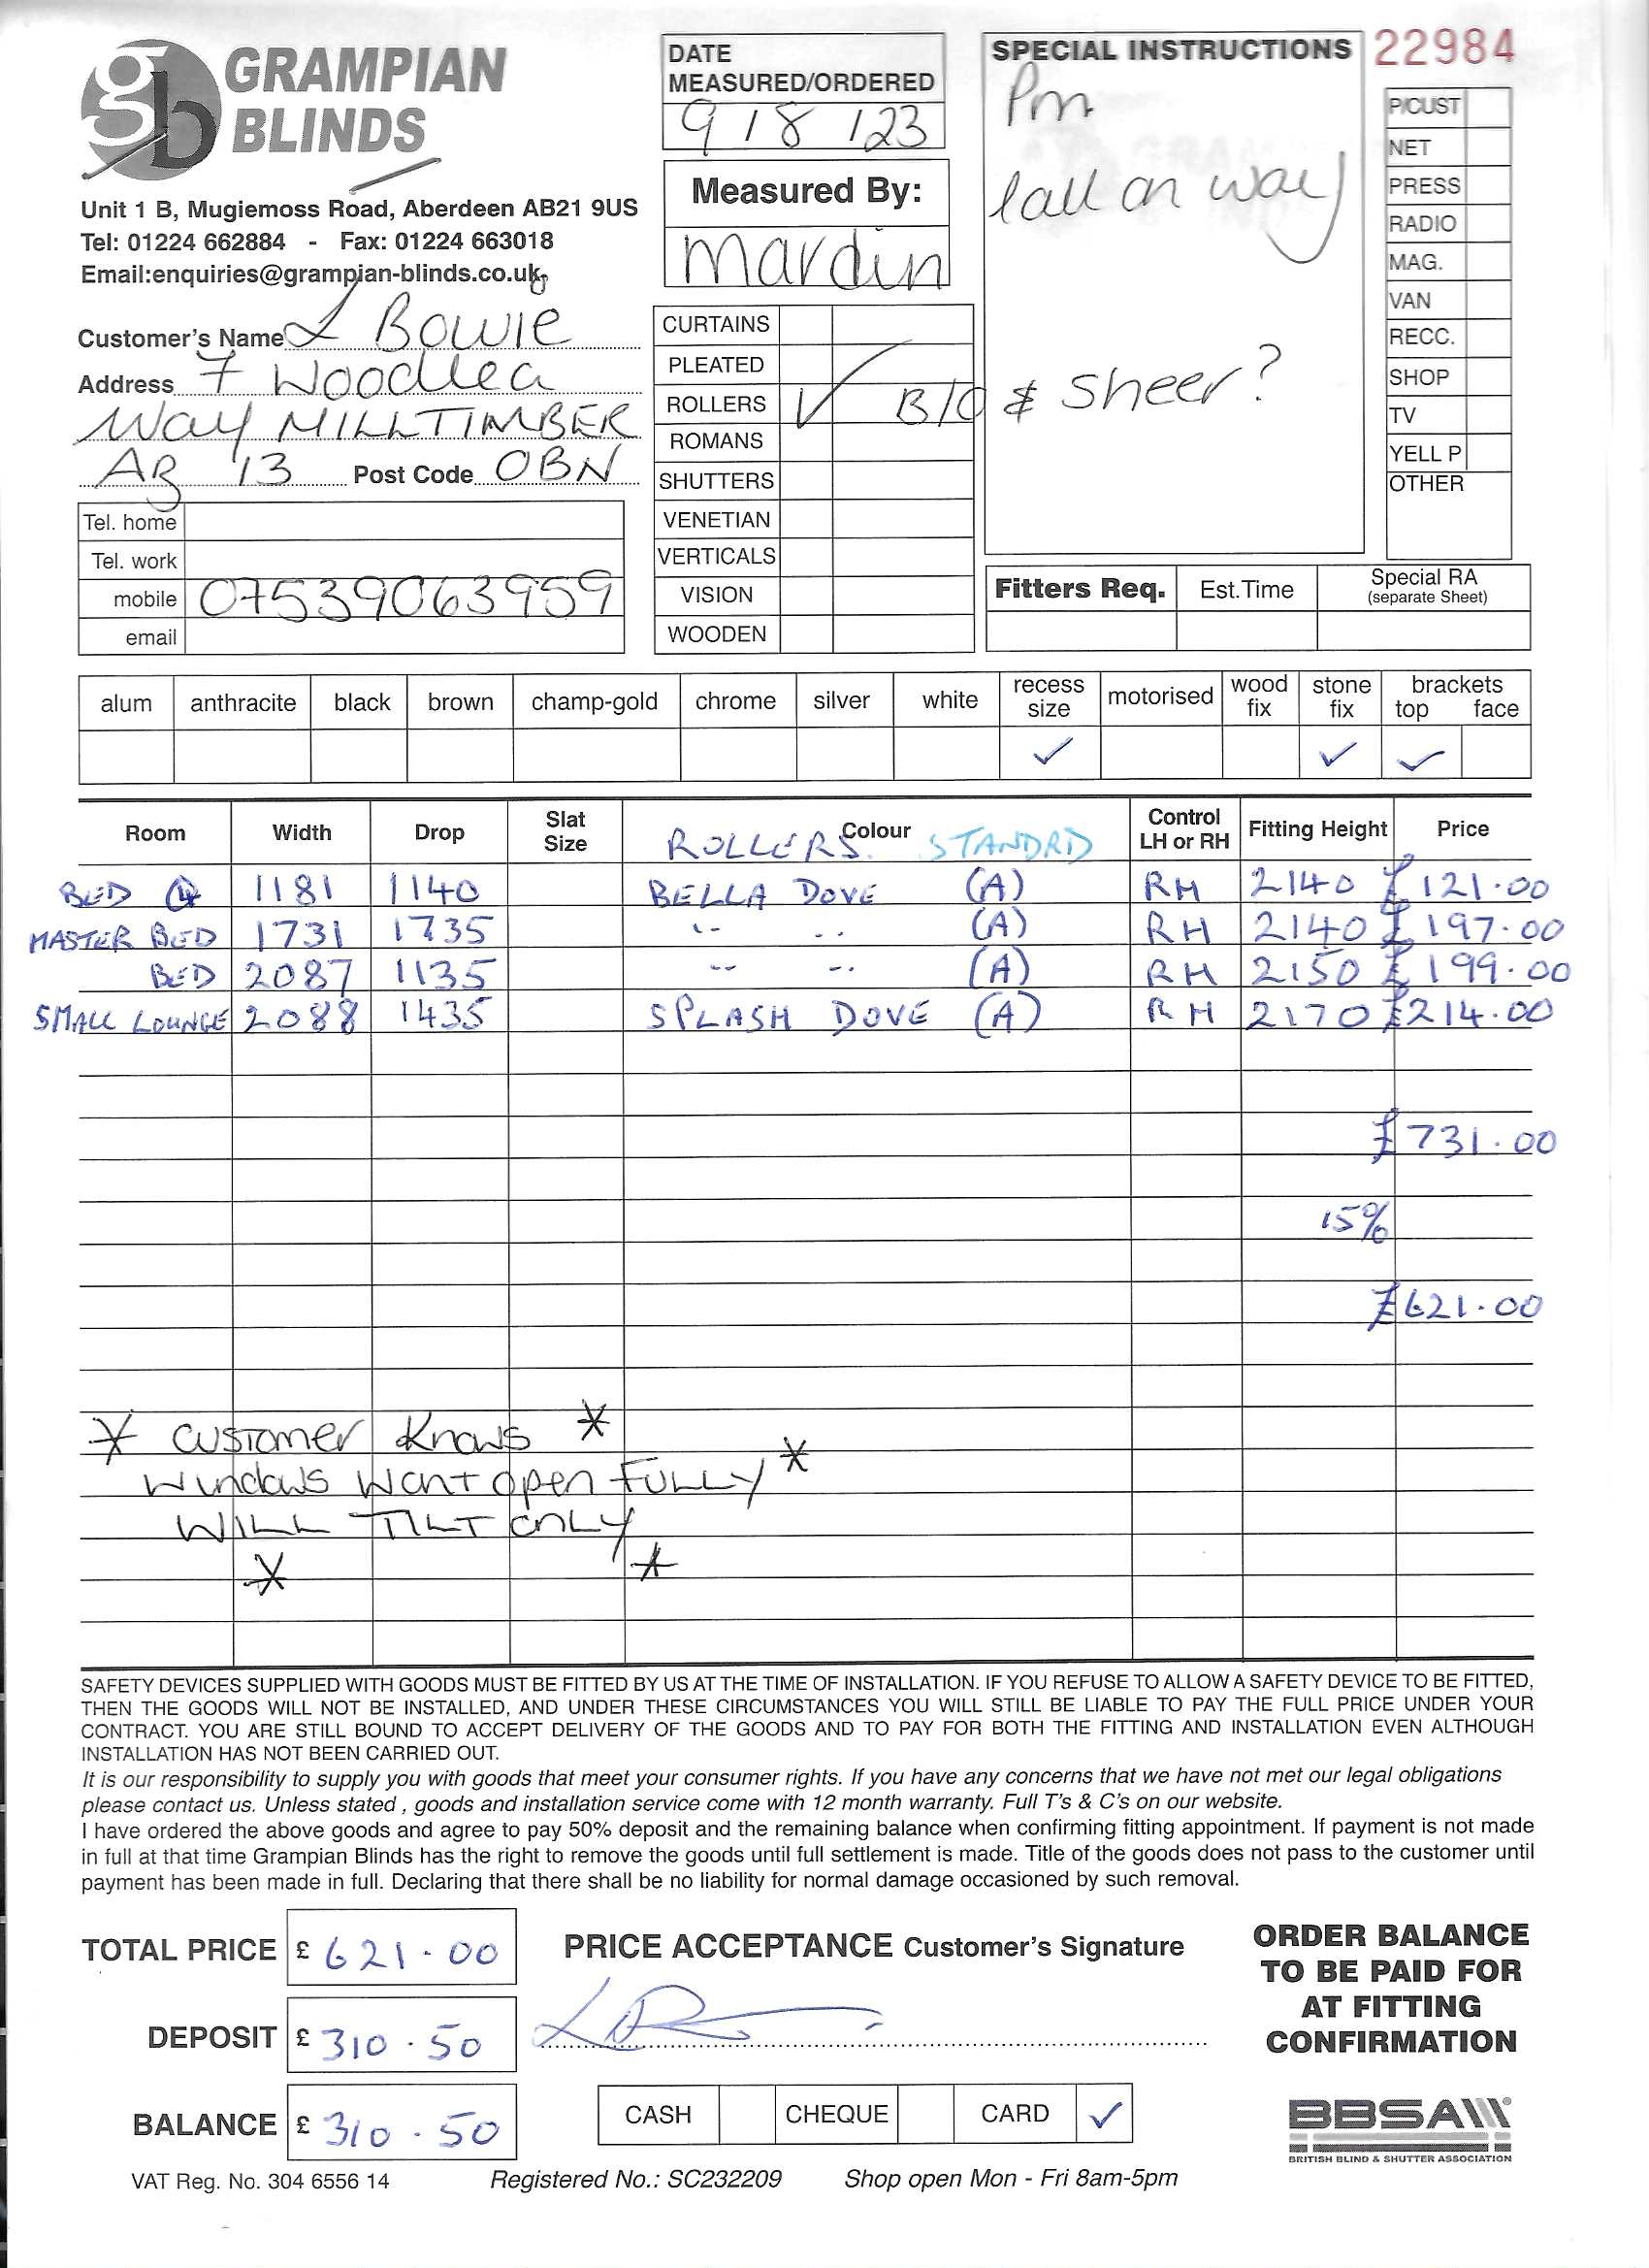 gb GRAMPIAN BLINDS
Unit 1 B, Mugiemoss Road, Aberdeen AB21 9US
Tel: 01224 662884 - Fax: 01224 663018
Email:enquiries@grampian-blinds.co.uk
Customer's Name L Bowie
Address 7 Woodlea
Way MILLTIMBER
AB 13 Post Code OBN
Tel. home
Tel. work
mobile 07539063959
email
DATE
MEASURED/ORDERED
9 / 8 / 23
Measured By:
Mardin
CURTAINS
PLEATED
ROLLERS ✓ B/O & Sheer?
ROMANS
SHUTTERS
VENETIAN
VERTICALS
VISION
WOODEN
SPECIAL INSTRUCTIONS
Pm
Call on way
22984
P/CUST
NET
PRESS
RADIO
MAG.
VAN
RECC.
SHOP
TV
YELL P
OTHER
Fitters Req. Est.Time Special RA (separate Sheet)
alum anthracite black brown champ-gold chrome silver white recess size motorised wood fix stone fix brackets top face
✓ ✓ ✓
Room Width Drop Slat Size Colour Control LH or RH Fitting Height Price
ROLLERS STANDRD
BED 4 1181 1140 BELLA DOVE (A) RH 2140 £121.00
MASTER BED 1731 1735 " " (A) RH 2140 £197.00
BED 2087 1135 " " (A) RH 2150 £199.00
SMALL LOUNGE 2088 1435 SPLASH DOVE (A) RH 2170 £214.00
£731.00
15%
£621.00
* Customer Knows *
Windows Wont open FULLY *
WILL TILT ONLY
* *
SAFETY DEVICES SUPPLIED WITH GOODS MUST BE FITTED BY US AT THE TIME OF INSTALLATION. IF YOU REFUSE TO ALLOW A SAFETY DEVICE TO BE FITTED,
THEN THE GOODS WILL NOT BE INSTALLED, AND UNDER THESE CIRCUMSTANCES YOU WILL STILL BE LIABLE TO PAY THE FULL PRICE UNDER YOUR
CONTRACT. YOU ARE STILL BOUND TO ACCEPT DELIVERY OF THE GOODS AND TO PAY FOR BOTH THE FITTING AND INSTALLATION EVEN ALTHOUGH
INSTALLATION HAS NOT BEEN CARRIED OUT.
It is our responsibility to supply you with goods that meet your consumer rights. If you have any concerns that we have not met our legal obligations
please contact us. Unless stated , goods and installation service come with 12 month warranty. Full T's & C's on our website.
I have ordered the above goods and agree to pay 50% deposit and the remaining balance when confirming fitting appointment. If payment is not made
in full at that time Grampian Blinds has the right to remove the goods until full settlement is made. Title of the goods does not pass to the customer until
payment has been made in full. Declaring that there shall be no liability for normal damage occasioned by such removal.
TOTAL PRICE £ 621.00
DEPOSIT £ 310.50
BALANCE £ 310.50
PRICE ACCEPTANCE Customer's Signature
CASH CHEQUE CARD ✓
ORDER BALANCE
TO BE PAID FOR
AT FITTING
CONFIRMATION
BBSA
BRITISH BLIND & SHUTTER ASSOCIATION
VAT Reg. No. 304 6556 14 Registered No.: SC232209 Shop open Mon - Fri 8am-5pm